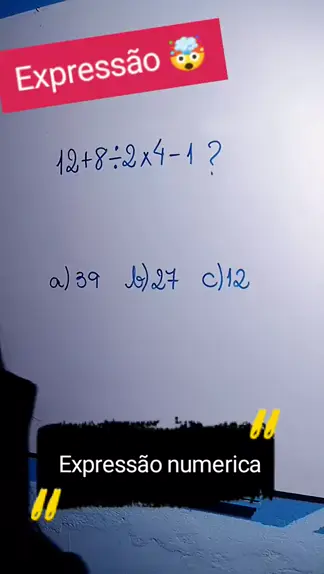 Expressão 🤯
12+8÷2x4-1 ?
a) 39 b) 27 c) 12
Expressão numerica